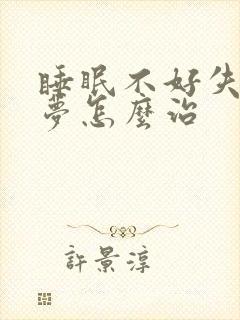 睡眠不好失
夢怎麼治
許景淳